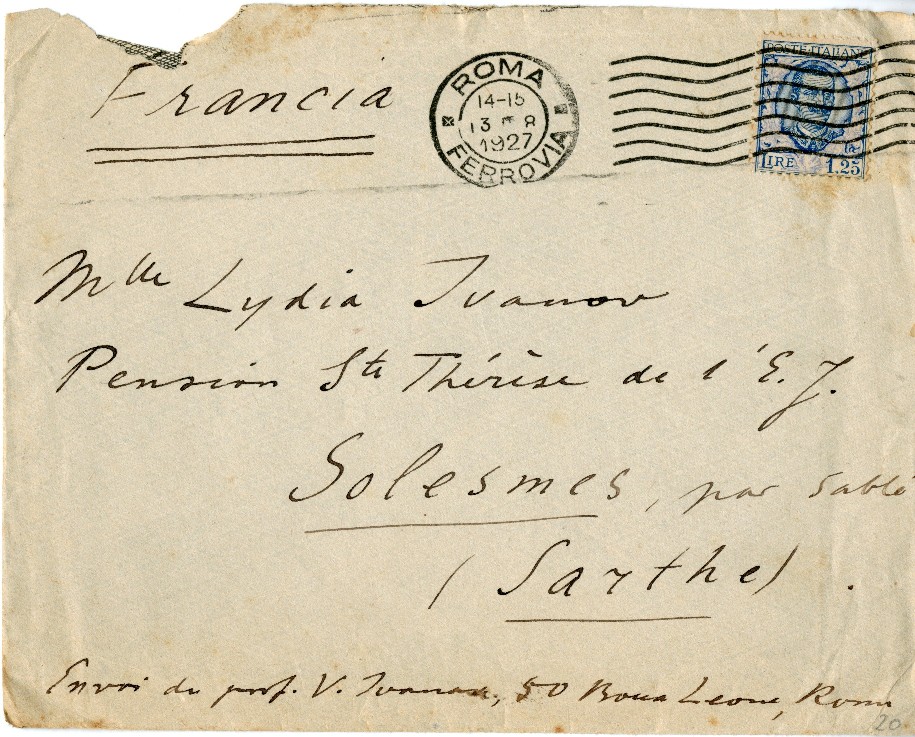 Francia
ROMA
14-15
13 8
1927
FERROVIA
POSTE ITALIANE
LIRE 1.25
Mlle Lydia Ivanov
Pension Ste Thérèse de l'E. J.
Solesmes, par Sablé
(Sarthe).
Envoi du prof. V. Ivanov, 50 Bocca Leone, Roma
20